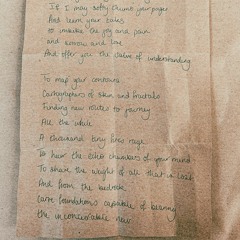 If I may softly thumb your pages
And learn your bales
to imbibe the joy and pain
and sorrow and love
And offer you the salve of understanding
To map your contours
Cartographers of skin and fractals
Finding new routes to journey
All the while
A thousand tiny fires rage
To hear the echo chambers of your mind
To share the weight of all that is lost
And from the bedrock
Carve foundations capable of bearing
the inconceivable now